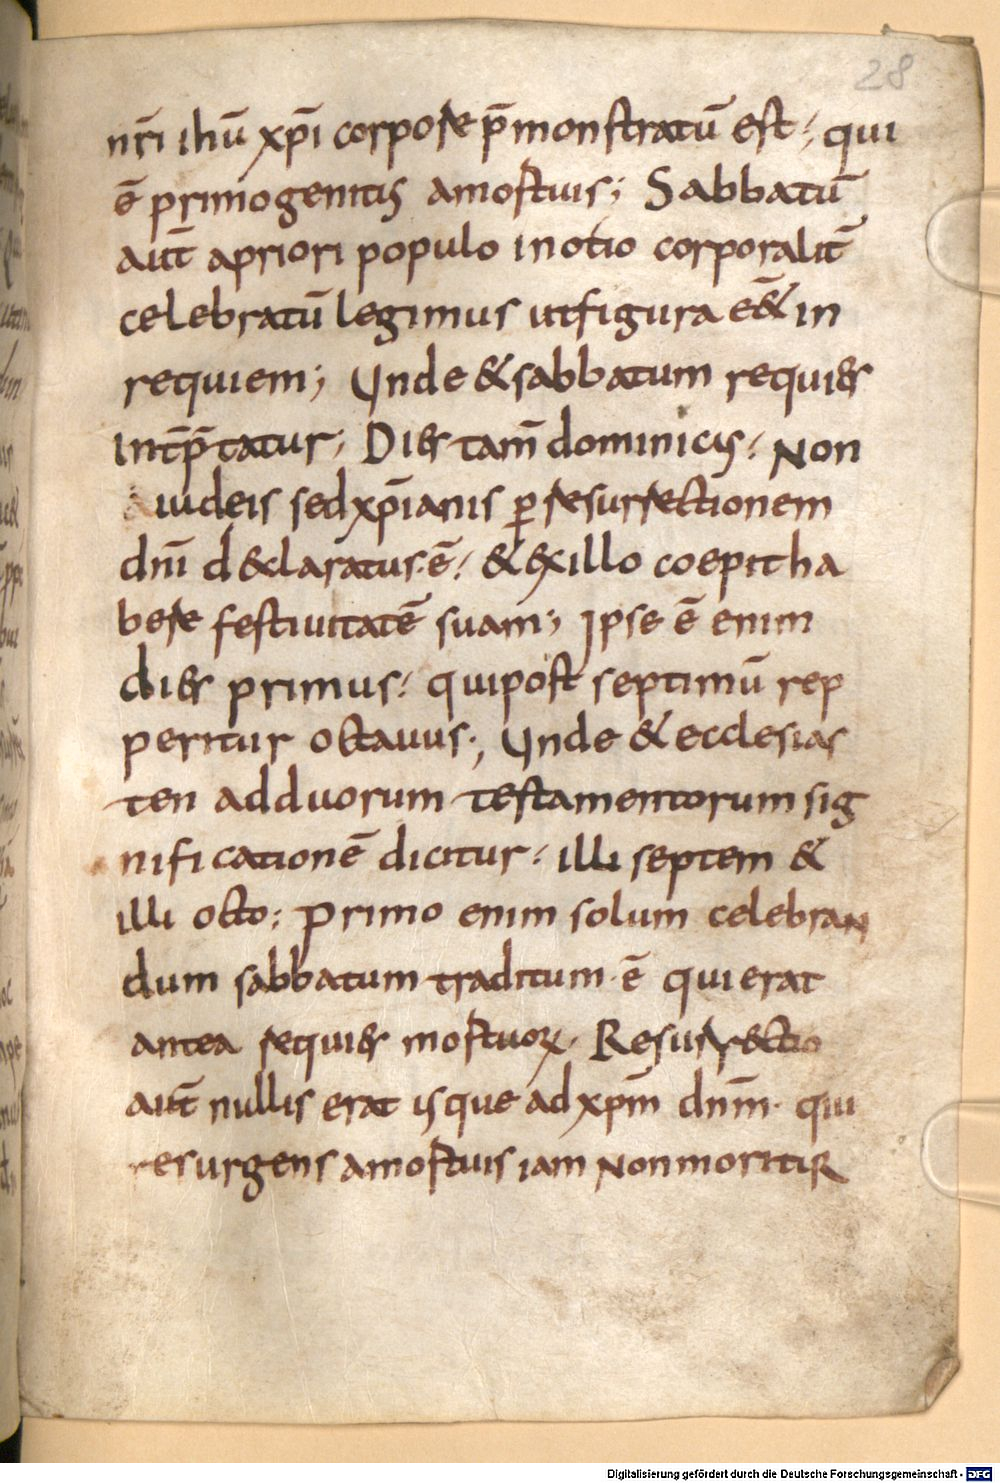 28
nr̄i ihū xp̄i corpore p̄monstratū est; qui
ē primogenitus amortuis; Sabbatū
aut̄ apriori populo inotio corporalit̄
celebratū legimus utfigura e&̄ in
requiem; Unde &sabbatum requies
int̄p̄tatur, Dies tam̄ dominicus; Non
iudeis sedxp̄ianis ꝑ resurrectionem
dn̄i declaratus·ē; & exillo coepit ha
bere festiuitatē suam; Ipse ē enim
dies primus; quipost septimū rep
peritur octauus; Unde & ecclesias
ten adduorum testamentorum sig
nificationē dicitur; illi septem &
illi octo; Primo enim solum celebran
dum sabbatum traditum·ē qui erat
antea requies mortuoꝝ· Resurrectio
aut̄ nullis erat usque ad xpm̄ dnm̄· qui
resurgens amortuis iam Nonmoritur
Digitalisierung gefördert durch die Deutsche Forschungsgemeinschaft - DFG